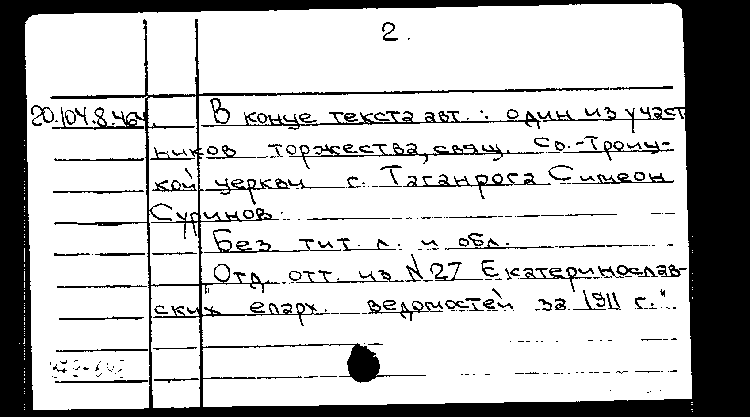 2.
20.104.8.464. В конце текста авт.: один из участ
ников торжества, свящ. Св.-Троиц-
кой церкви г. Таганрога Симеон
Суринов.
Без тит. л. и обл.
"Отд. отт. из N 27 Екатеринослав-
ских епарх. ведомостей за 1911 г."